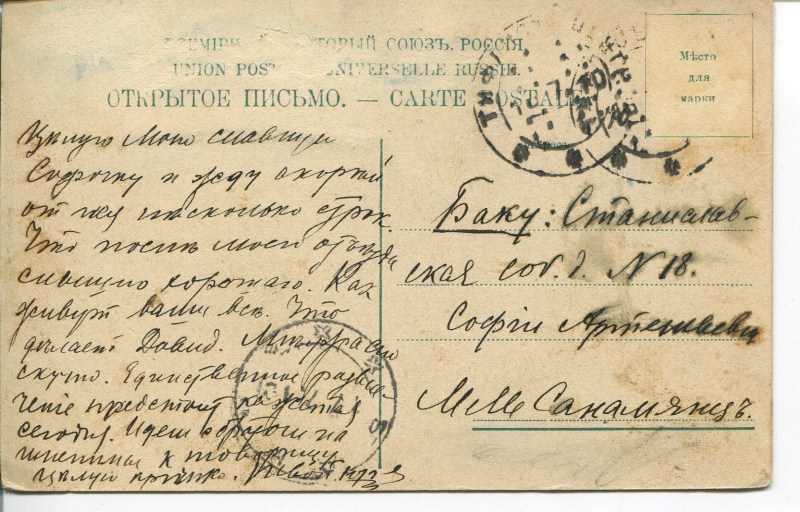 ВСЕМІРНЫЙ ПОЧТОВЫЙ СОЮЗЪ. РОССІЯ
UNION POSTALE UNIVERSELLE RUSSIE.
ОТКРЫТОЕ ПИСЬМО. — CARTE POSTALE
Мѣсто
для
марки
Цѣлую мою славную
Софочку и жду скорѣй
от нея нѣсколько строк.
Что послѣ моего отъѣзда
слышно хорошаго. Как
живут ваши всѣ. Что
дѣлает Давид.
скучно. Единственное развле-
чение предстоит
сегодня. Идем
к товарищу
цѣлую крѣпко. Твой
Баку: Станислав-
ская соб. д. N 18.
Софіи Артемьевнѣ
М-Ме Санамянцъ.